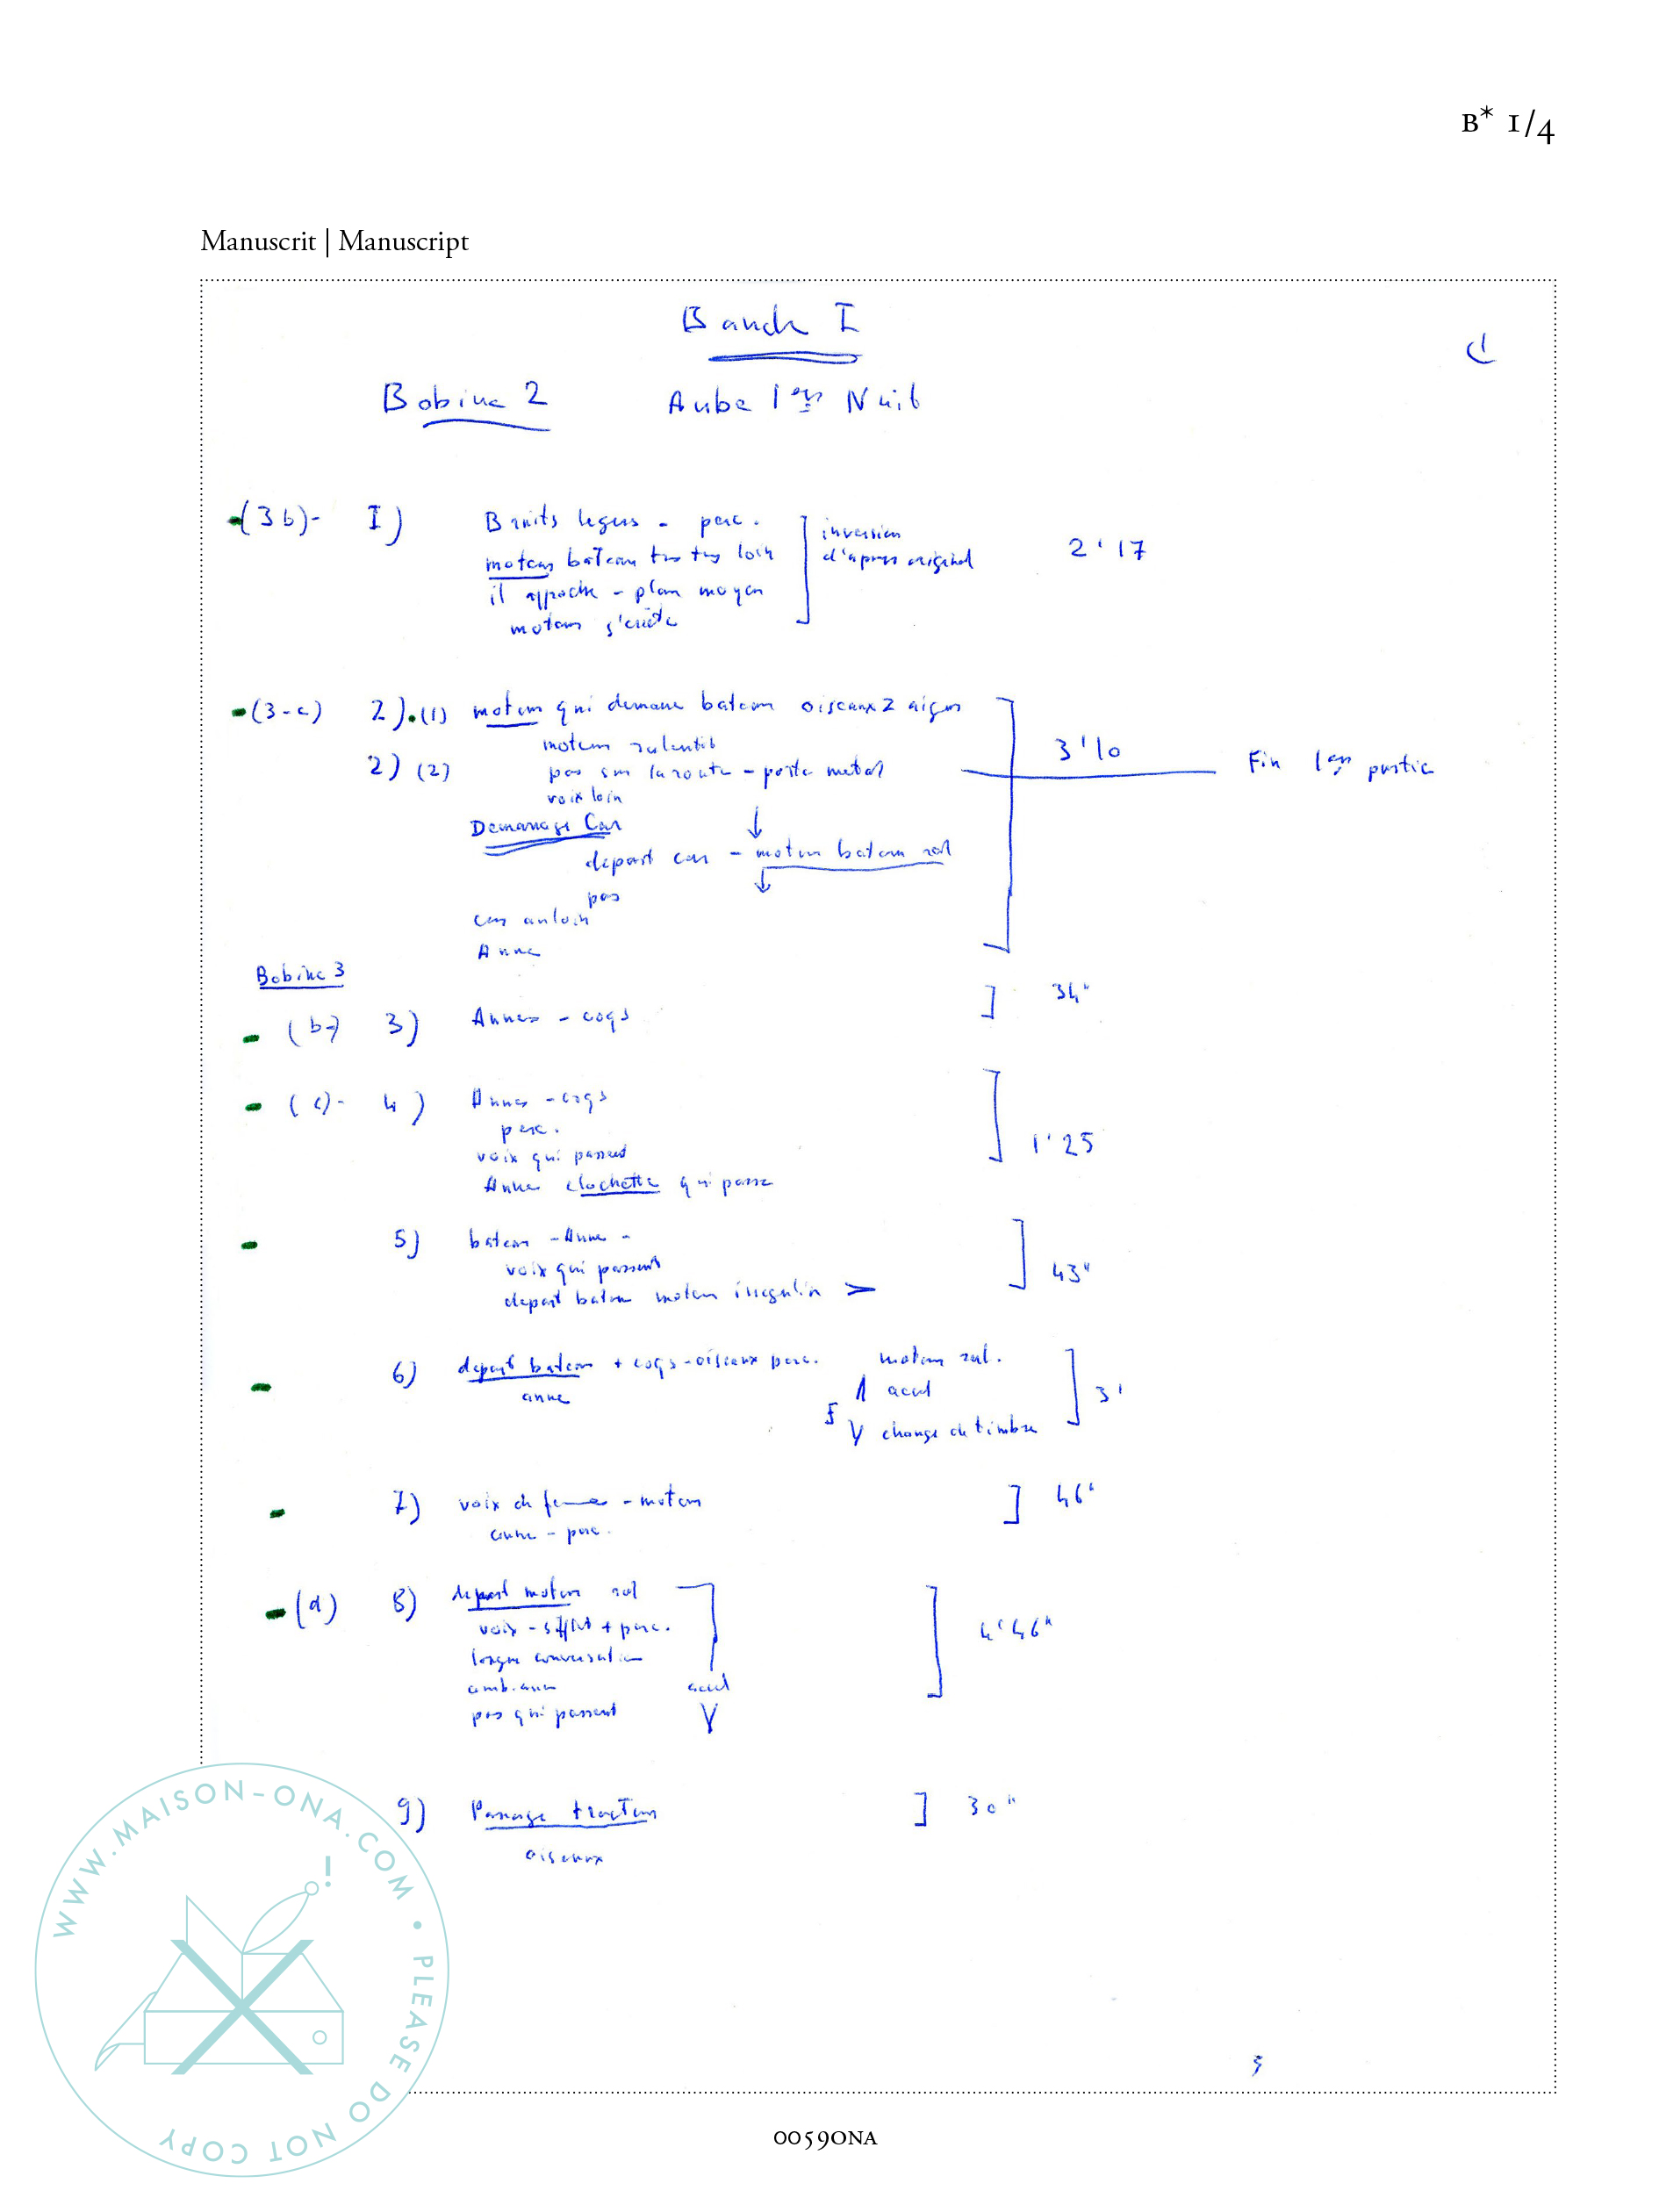 B* 1/4
Manuscrit | Manuscript
Bande I
Bobine 2 Aube 1ère Nuit
(3b)- I) Bruits legers - perc.
moteur bateau tres tres loin
il approche - plan moyen
moteur s'arrête
inversion
d'apres original
2'17
(3-c) 2).(1) moteur qui demarre bateau oiseaux 2 aigus
moteur ralentit
2) (2) pas sur la route - porte metal
voix loin
3'10
Fin 1ère partie
Demarrage Car
depart car - moteur bateau ral
pas
car au loin
Anne
Bobine 3
(b-) 3) Annes - coqs
34"
(c)- 4) Annes - coqs
perc.
voix qui passent
Anne clochette qui passe
1'25
5) bateau - Anne -
voix qui passent
depart bateau moteur irregulier >
43"
6) depart bateau + coqs - oiseaux perc. moteur ral.
anne
accel
change de timbre
3'
7) voix de femmes - moteur
anne - perc.
46"
(d) 8) depart moteur ral
voix - sifflet + perc.
longue conversation
amb. anne
pas qui passent
accel
4'46"
9) Passage tracteur
oiseaux
30"
WWW.MAISON-ONA.COM • PLEASE DO NOT COPY
0059ONA